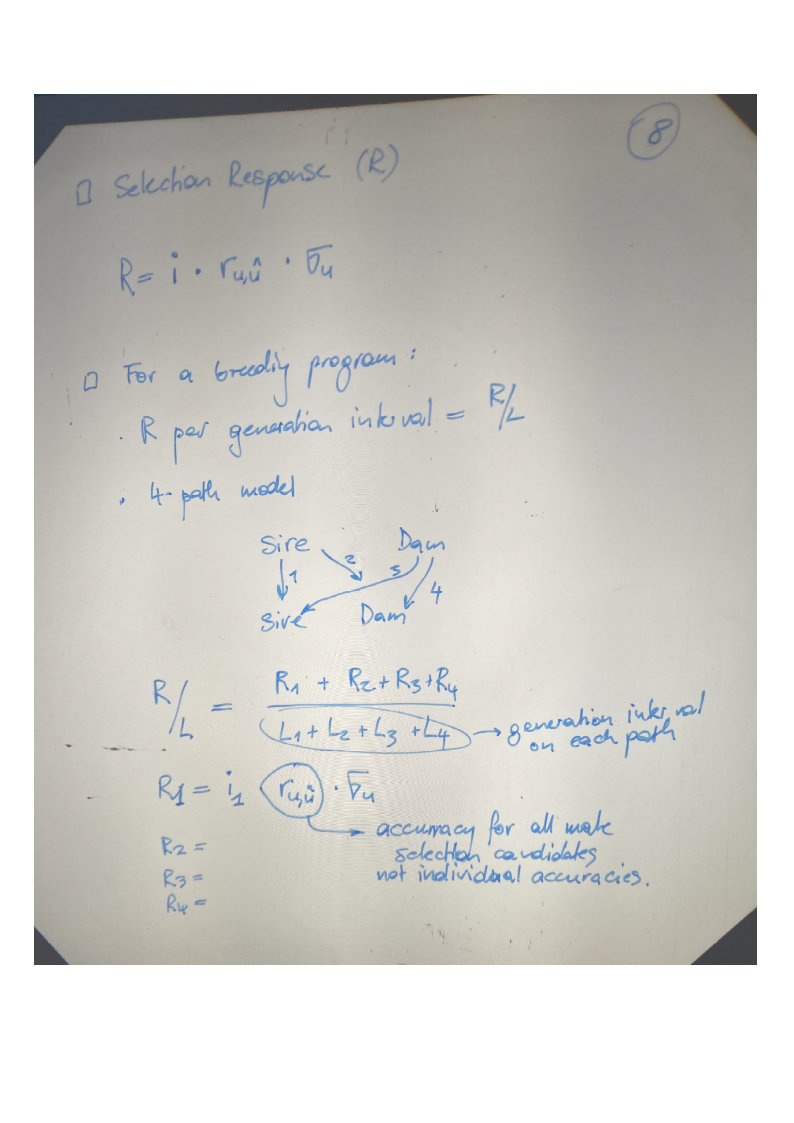 8
□ Selection Response (R)
R = i · r_{u,û} · σ_u
□ For a breedig program :
· R per generation interval = R/L
· 4-path model
Sire Dam
1 2 3 4
Sire Dam
R/L = (R1 + R2 + R3 + R4) / (L1 + L2 + L3 + L4) → generation interval
on each path
R1 = i1 r_{u,û} · σ_u
→ accuracy for all male
selection candidates
not individual accuracies.
R2 =
R3 =
R4 =